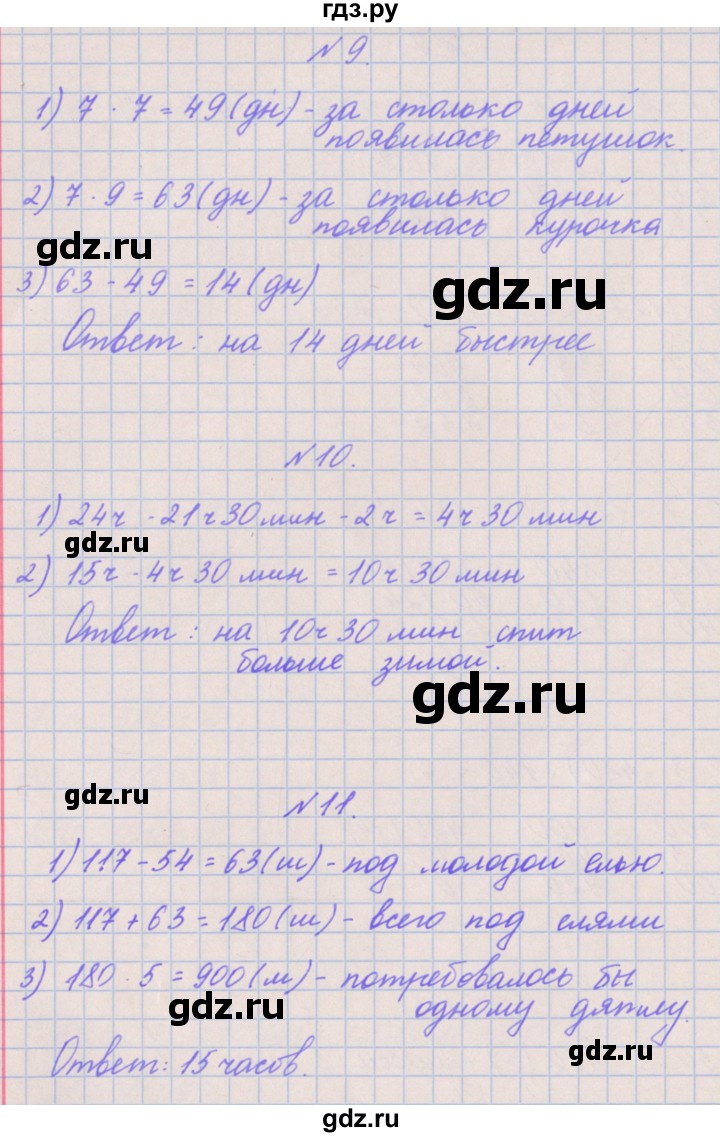 гдз.ру
№9.
1) 7 · 7 = 49 (дн) - за столько дней
появилась петушок.
2) 7 · 9 = 63 (дн) - за столько дней
появилась курочка
gdz.ru
3) 63 - 49 = 14 (дн)
gdz.ru
Ответ: на 14 дней быстрее
№10.
1) 24ч - 21ч 30 мин - 2ч = 4ч 30 мин
gdz.ru
2) 15ч - 4ч 30 мин = 10ч 30 мин
Ответ: на 10ч 30 мин спит
больше зимой.
gdz.ru
gdz.ru
№11.
1) 117 - 54 = 63 (ш) - под молодой елью.
2) 117 + 63 = 180 (ш) - всего под елями
3) 180 · 5 = 900 (м) - потребовалось бы
одному дятлу.
gdz.ru
Ответ: 15 часов.
gdz.ru
gdz.ru